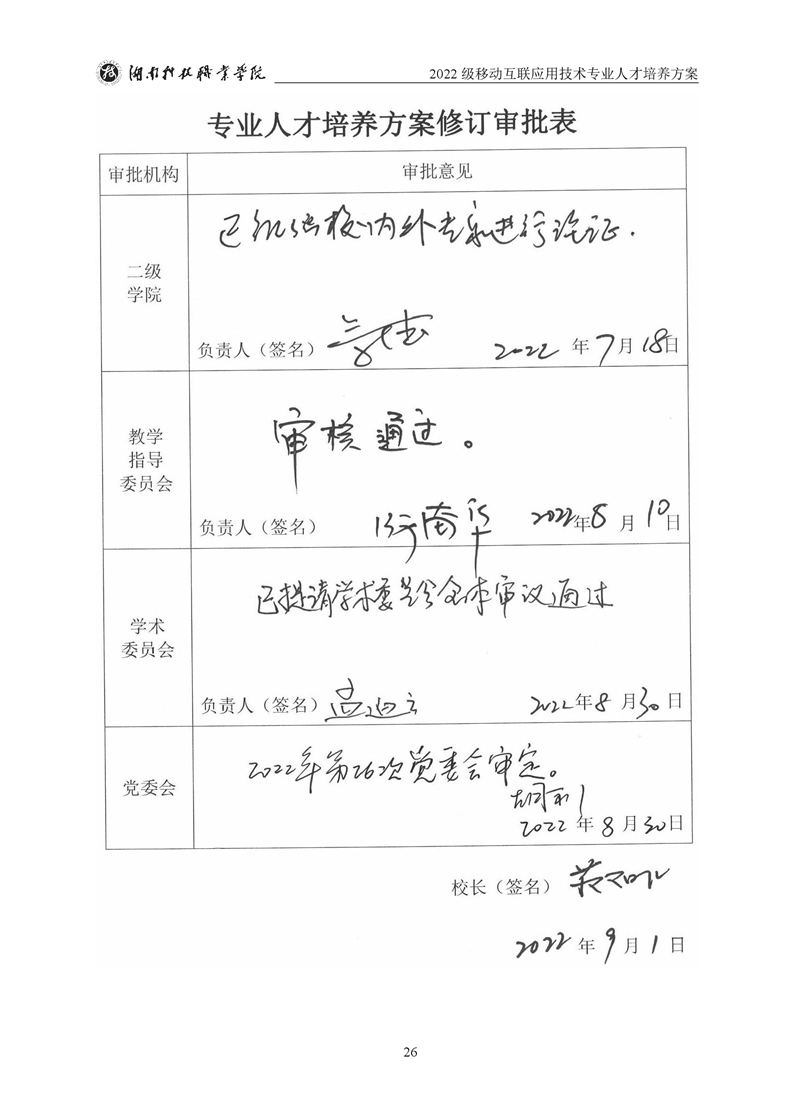 湖南科技职业学院
2022 级移动互联应用技术专业人才培养方案
专业人才培养方案修订审批表
审批机构
审批意见
已组织校内外专家进行论证.
二级
学院
负责人（签名）
2022 年 7 月 18 日
审核通过。
教学
指导
委员会
负责人（签名）
2022 年 8 月 10 日
已提请学术委员会全体审议通过
学术
委员会
负责人（签名）
2022 年 8 月 30 日
2022年第26次党委会审定。
党委会
2022 年 8 月 30 日
校长（签名）
2022 年 9 月 1 日
26